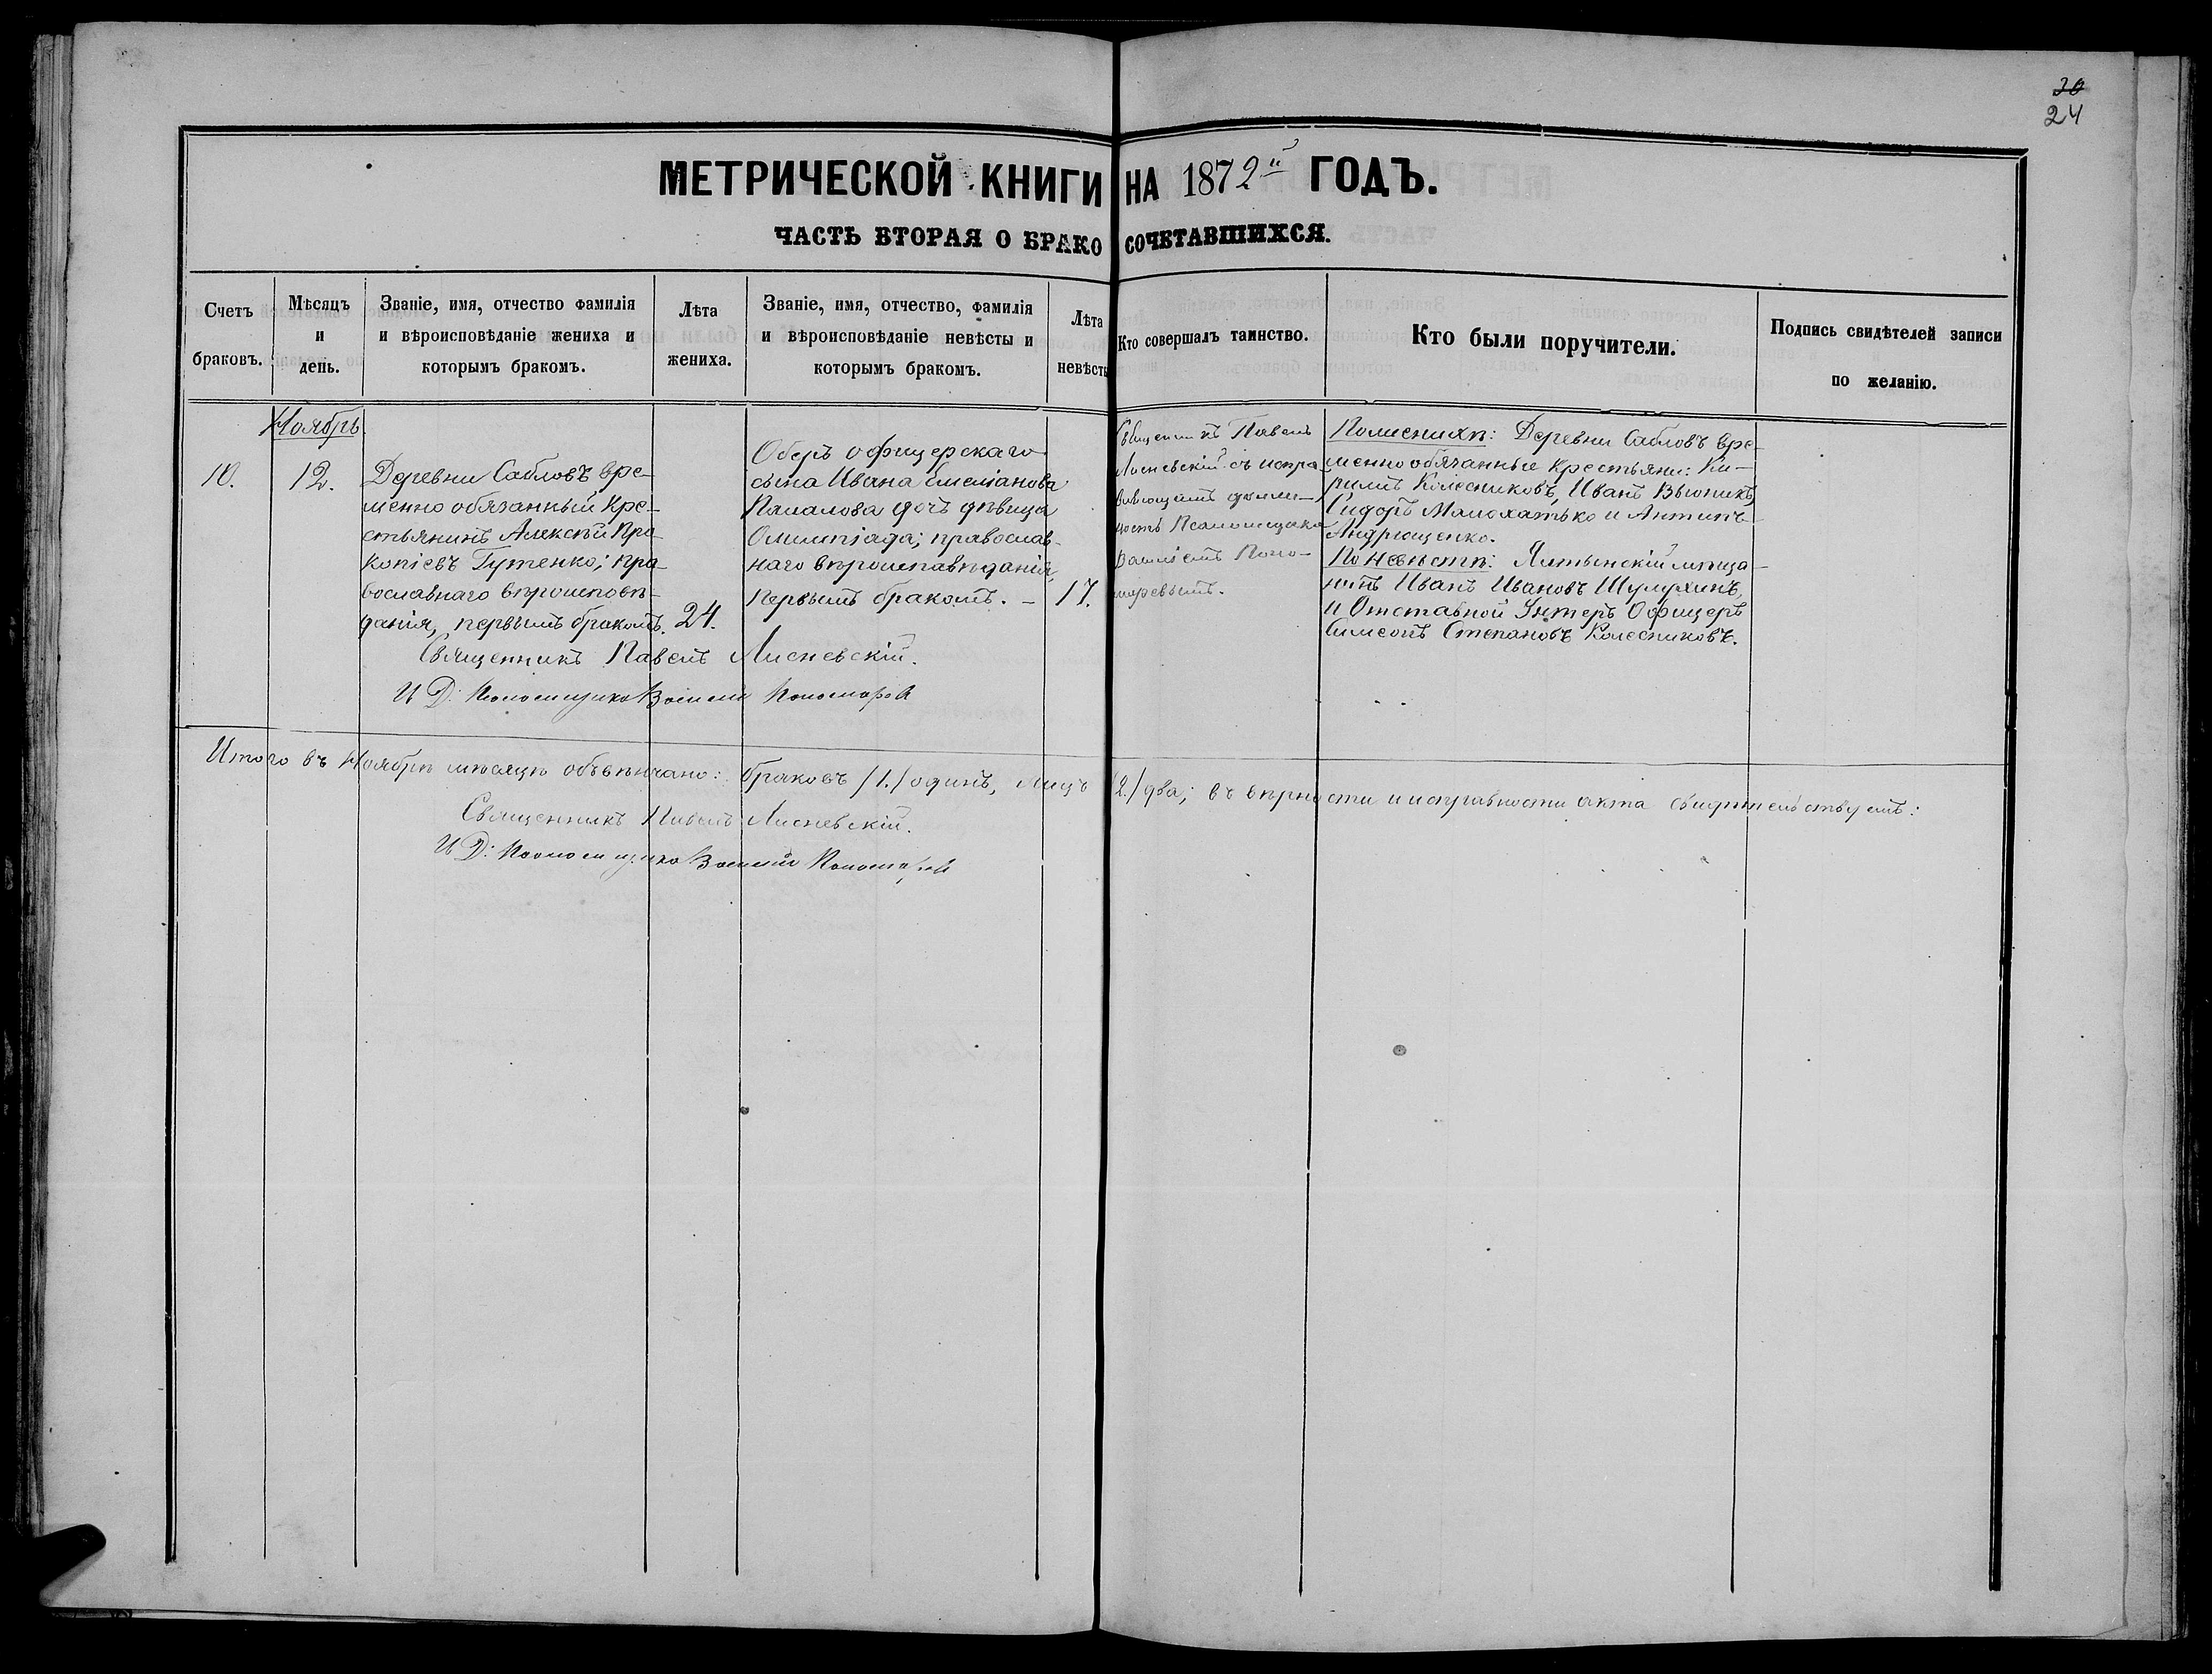 30
24
МЕТРИЧЕСКОЙ КНИГИ НА 1872й ГОДЪ.
ЧАСТЬ ВТОРАЯ О БРАКОСОЧЕТАВШИХСЯ.
Счетъ браковъ.
Мѣсяцъ и день.
Званіе, имя, отчество фамилія
и вѣроисповѣданіе жениха и
которымъ бракомъ.
Лѣта жениха.
Званіе, имя, отчество, фамилія
и вѣроисповѣданіе невѣсты и
которымъ бракомъ.
Лѣта невѣсты
Кто совершалъ таинство.
Кто были поручители.
Подпись свидѣтелей записи
по желанію.
Ноябрь.
10.
12.
Деревни Сабловъ вре-
менно обязанный кре-
стьянинъ Алексѣй Про-
копіевъ Гутенко; пра-
вославнаго вѣроисповѣ-
данія, первымъ бракомъ.
24.
Оберъ офицерскаго
сына Ивана Емелианова
дочь дѣвица
Олимпіада; православ-
наго вѣроисповѣданія,
первымъ бракомъ. —
17.
Священникъ Павелъ
Лисневскій съ испра-
вляющимъ долж-
ность Псаломщика
Василіемъ Поно-
маревымъ.
По женихѣ: Деревни Сабловъ вре-
менно обязанные крестьяни: Ки-
рилъ Колесниковъ, Иванъ Вьюникъ,
Сидоръ Малохатько и Антипъ
Андрющенко.
По невѣстѣ: Ялтынскій мѣща-
нинъ Иванъ Ивановъ
и Отставной Унтеръ Офицеръ
Симеонъ Степановъ Колесниковъ.
Священникъ Павелъ Лисневскій.
И Д: Псаломщика Василій Пономаревъ
Итого въ Ноябрѣ мѣсяцѣ объвѣнчано: браковъ /1./ одинъ, лицъ /2./ два; въ вѣрности и исправности акта свидѣтельствуемъ:
Священникъ Павелъ Лисневскій.
И Д: Псаломщика Василій Пономаревъ